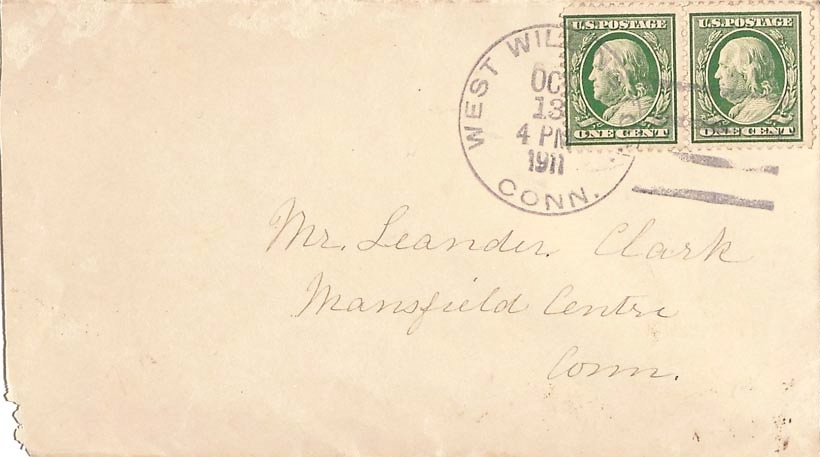 U.S.POSTAGE U.S.POSTAGE
ONE CENT ONE CENT
WEST
OC
13
4 PM
1911
CONN.
Mr. Leander Clark
Mansfield Centre
Conn.